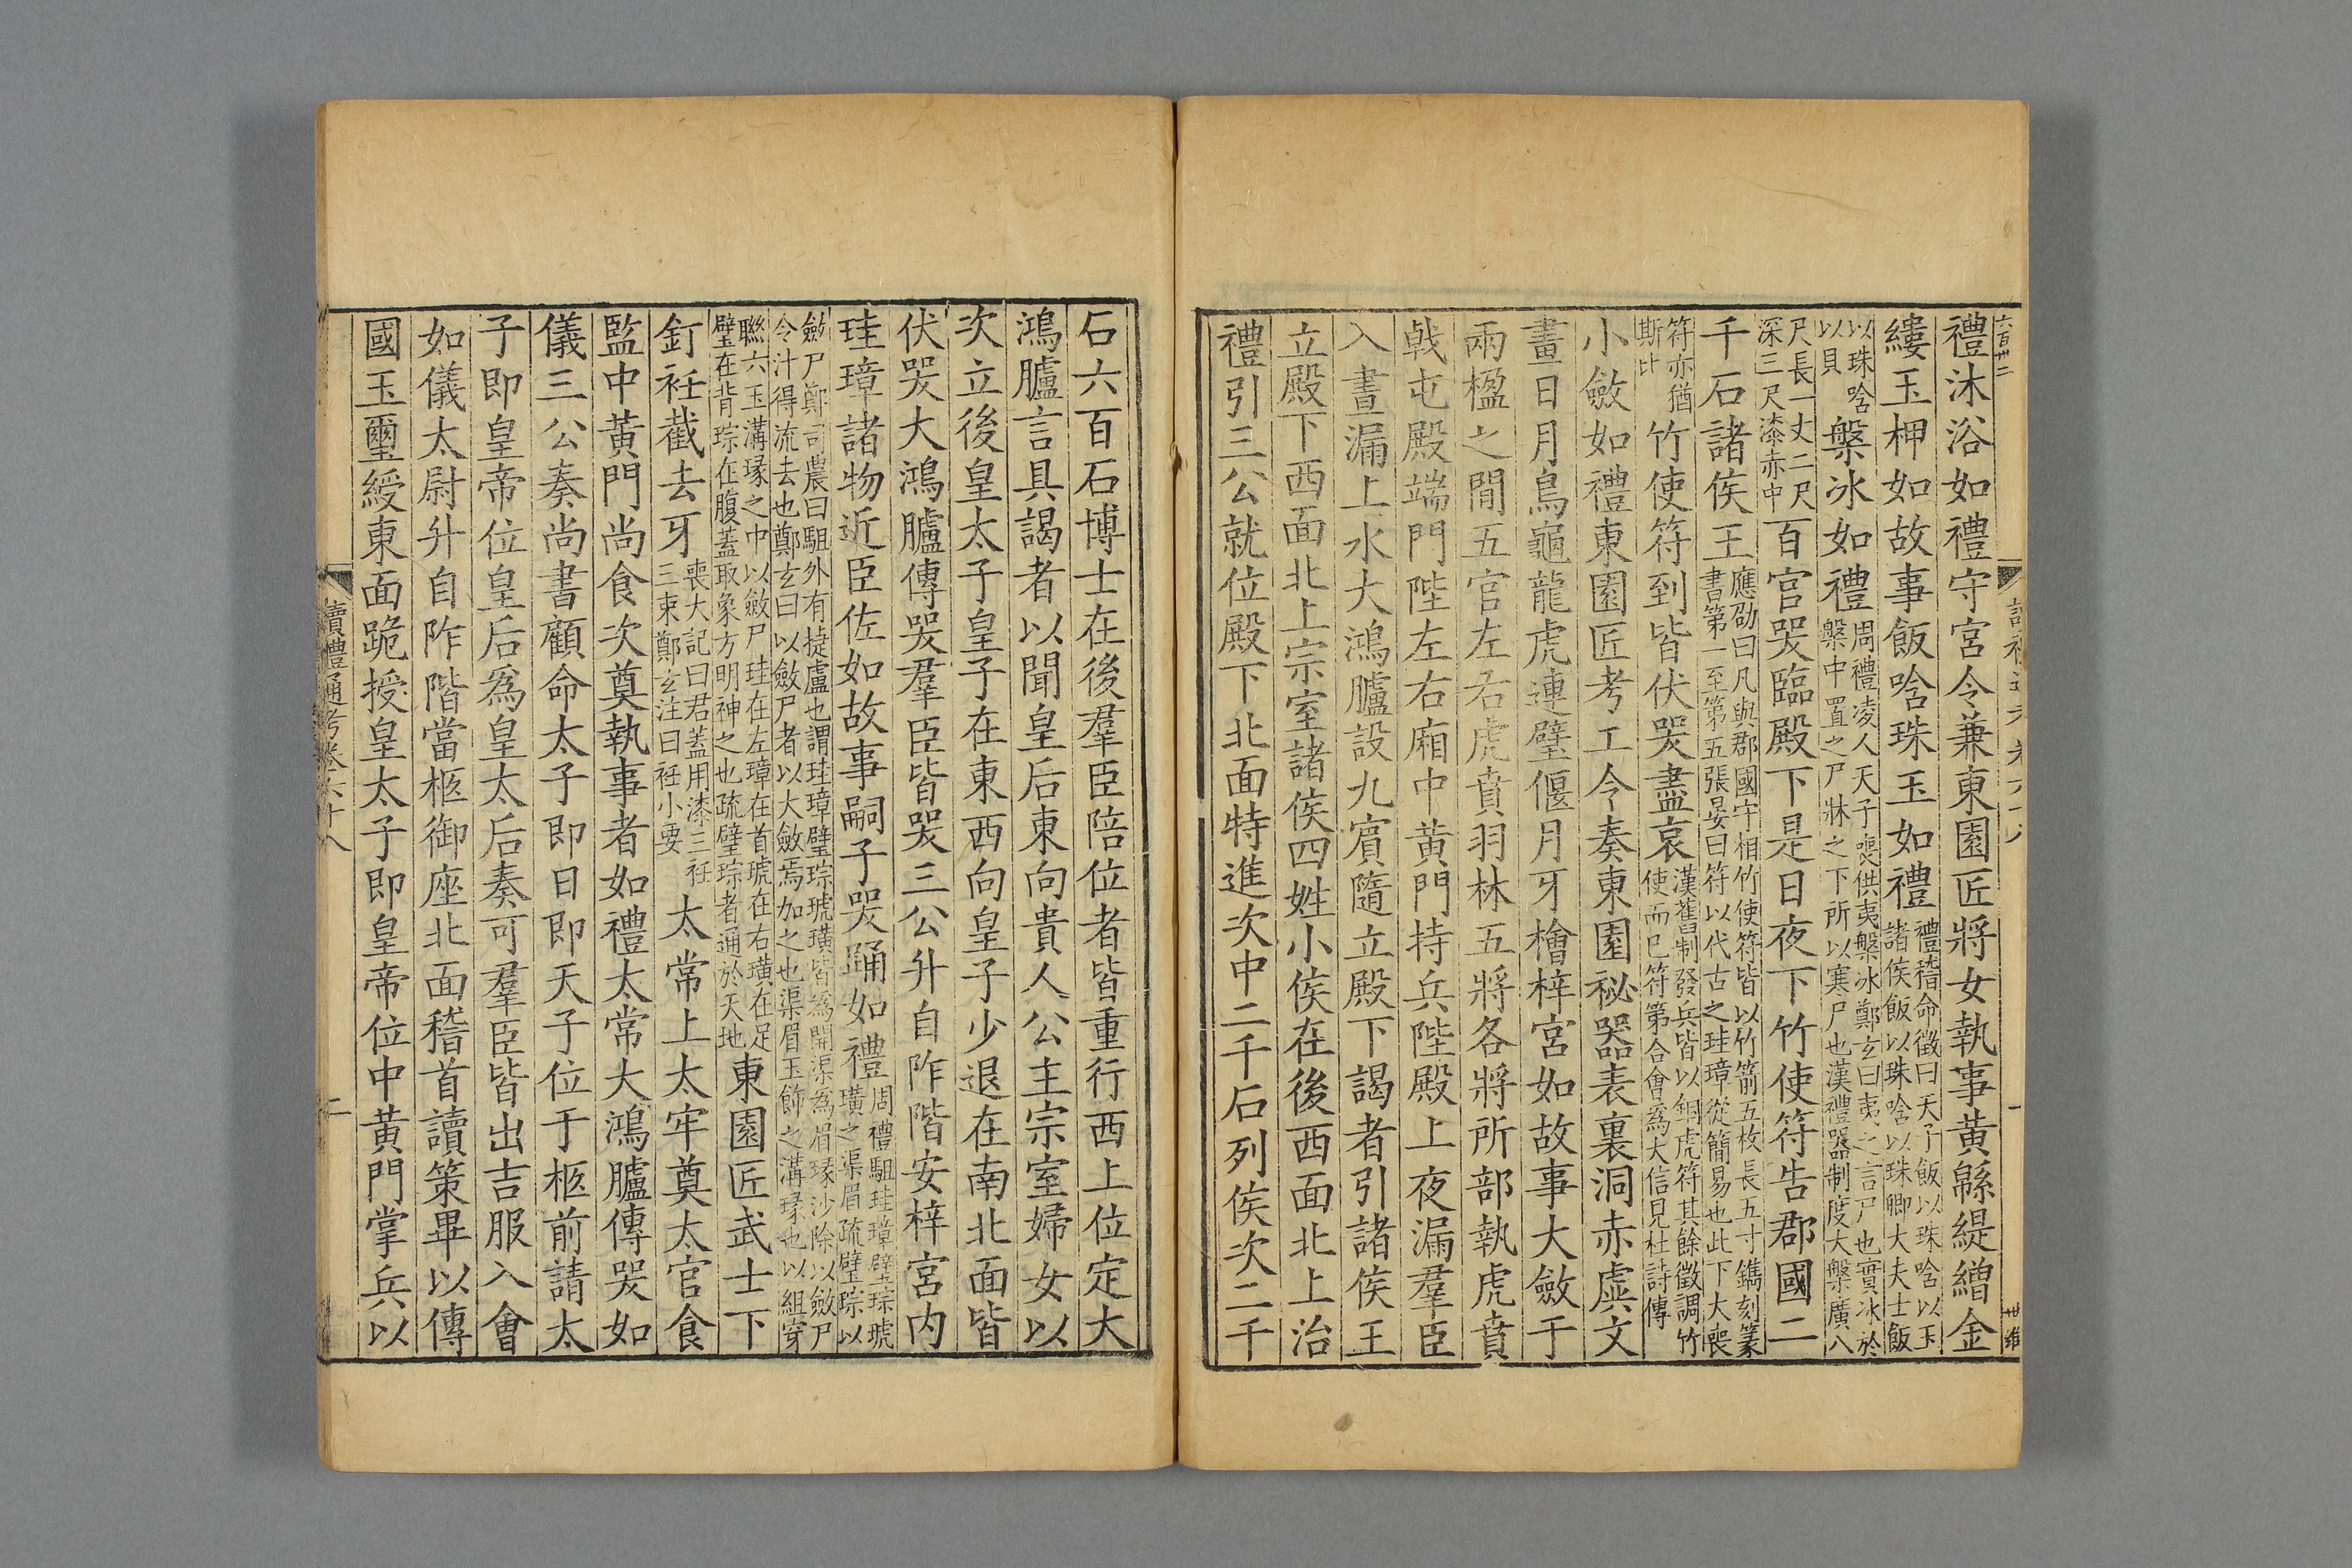 六百卅二
禮沐浴如禮守宮令兼東園匠將女執事黃緜緹繒金
縷玉柙如故事飯唅珠玉如禮禮稽命徵曰天子飯以珠唅以玉諸侯飯以珠唅以珠卿大夫士飯
以珠唅以貝槃冰如禮周禮凌人天子喪供夷槃冰鄭玄曰夷之言尸也實冰於槃中置之尸牀之下所以寒尸也漢禮器制度大槃廣八
尺長一丈二尺深三尺漆赤中百官哭臨殿下是日夜下竹使符告郡國二
千石諸侯王應劭曰凡與郡國守相竹使符皆以竹箭五枚長五寸鐫刻篆書第一至第五張晏曰符以代古之珪璋從簡易也此下大喪
符亦猶斯比竹使符到皆伏哭盡哀漢舊制發兵皆以銅虎符其餘徵調竹使而已符第合會為大信見杜詩傳
小斂如禮東園匠考工令奏東園祕器表裏洞赤虡文
畫日月鳥龜龍虎連璧偃月牙檜梓宮如故事大斂于
兩楹之間五官左右虎賁羽林五將各將所部執虎賁
戟屯殿端門陛左右廂中黃門持兵陛殿上夜漏羣臣
入晝漏上水大鴻臚設九賓隨立殿下謁者引諸侯王
立殿下西面北上宗室諸侯四姓小侯在後西面北上治
禮引三公就位殿下北面特進次中二千石列侯次二千
石六百石博士在後羣臣陪位者皆重行西上位定大
鴻臚言具謁者以聞皇后東向貴人公主宗室婦女以
次立後皇太子皇子在東西向皇子少退在南北面皆
伏哭大鴻臚傳哭羣臣皆哭三公升自阼階安梓宮內
珪璋諸物近臣佐如故事嗣子哭踊如禮周禮駔珪璋璧琮琥璜之渠眉疏璧琮以
斂尸鄭司農曰駔外有捷盧也謂珪璋璧琮琥璜皆為開渠為眉瑑沙除以斂尸令汁得流去也鄭玄曰以斂尸者以大斂焉加之也渠眉玉飾之溝瑑也以組穿
聯六玉溝瑑之中以斂尸珪在左璋在首琥在右璜在足璧在背琮在腹蓋取象方明神之也疏璧琮者通於天地東園匠武士下
釘衽截去牙喪大記曰君蓋用漆三衽三束鄭玄注曰衽小要太常上太牢奠太官食
監中黃門尚食次奠執事者如禮太常大鴻臚傳哭如
儀三公奏尚書顧命太子即日即天子位于柩前請太
子即皇帝位皇后為皇太后奏可羣臣皆出吉服入會
如儀太尉升自阼階當柩御座北面稽首讀策畢以傳
國玉璽綬東面跪授皇太子即皇帝位中黃門掌兵以
讀禮通考卷六十八
二